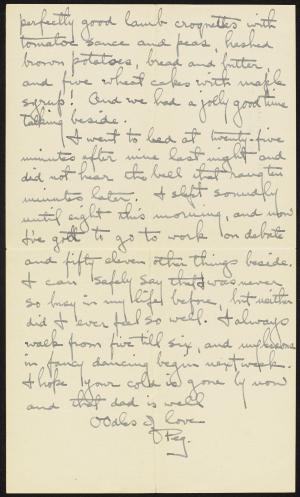 perfectly good lamb croquettes with
tomatoe sauce and peas, hashed
brown potatoes, bread and butter
and five wheat cakes with maple
syrup! And we had a jolly good time
talking beside.
I went to bed at twenty-five
minutes after nine last night and
did not hear the bell that rang ten
minutes later. I slept soundly
until eight this morning, and now
I've got to go to work on debate
and fifty eleven other things beside.
I can safely say that I was never
so busy in my life before, but neither
did I ever feel so well. I always
walk from five till six, and my lessons
in fancy dancing begin next week.
I hope your cold is gone by now
and that dad is well
Oodles of love
Peg.